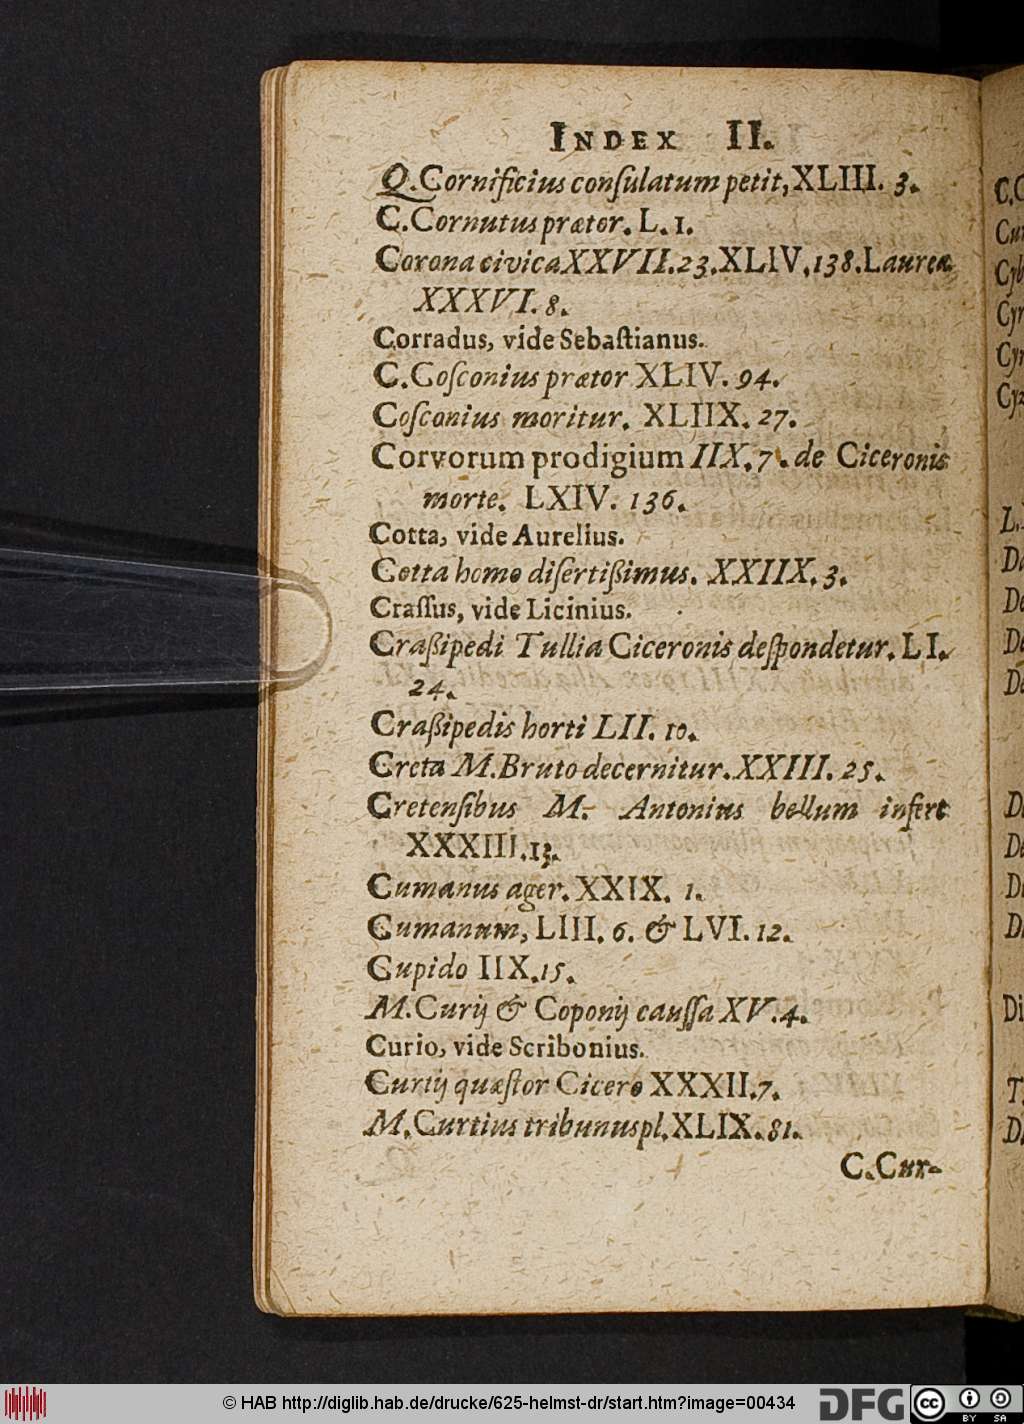 INDEX II.
Q. Cornificius conſulatum petit, XLIII. 3.
C. Cornutus prætor. L. 1.
Corona civica XXVII. 23. XLIV. 138. Laurea
XXXVI. 8.
Corradus, vide Sebaſtianus.
C. Coſconius prætor XLIV. 94.
Coſconius moritur. XLIIX. 27.
Corvorum prodigium IIX. 7. de Ciceronis
morte. LXIV. 136.
Cotta, vide Aurelius.
Cotta homo diſertißimus. XXIIX. 3.
Craſſus, vide Licinius.
Craßipedi Tullia Ciceronis deſpondetur. LI.
24.
Craßipedis horti LII. 10.
Creta M. Bruto decernitur. XXIII. 25.
Cretenſibus M. Antonius bellum infert
XXXIII. 13.
Cumanus ager. XXIX. 1.
Cumanum, LIII. 6. & LVI. 12.
Cupido IIX. 15.
M. Curij & Coponij cauſſa XV. 4.
Curio, vide Scribonius.
Curtij quæſtor Cicero XXXII. 7.
M. Curtius tribunus pl. XLIX. 81.
C. Cur-
© HAB http://diglib.hab.de/drucke/625-helmst-dr/start.htm?image=00434
DFG
cc BY SA